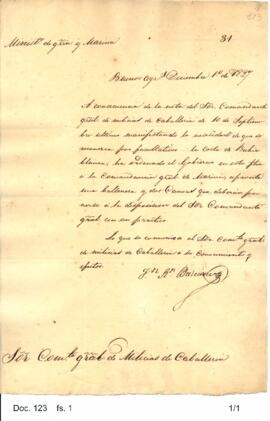 Minist.º de grra y Marina
31
123
Buenos Ayr.s Diciembre 1º de 1827
A consecuencia de la nota del Sor Comandante
gral de milicias de Caballeria de 10 de Septiem
bre ultimo manifestando la necesidad de que se
la costa de Bahia
blanca, ha ordenado el Gobierno en esta fha
a la Comandancia gral de Marina, apronte
una ballenera y dos que deberan
a la disposicion del Sor Comandante
gral con su
Lo que se comunica al Sor Comte gral
de milicias de Caballeria a su conocimiento y
efectos.
Sor Comte gral de Milicias de Caballeria
Doc. 123 fs. 1
1/1